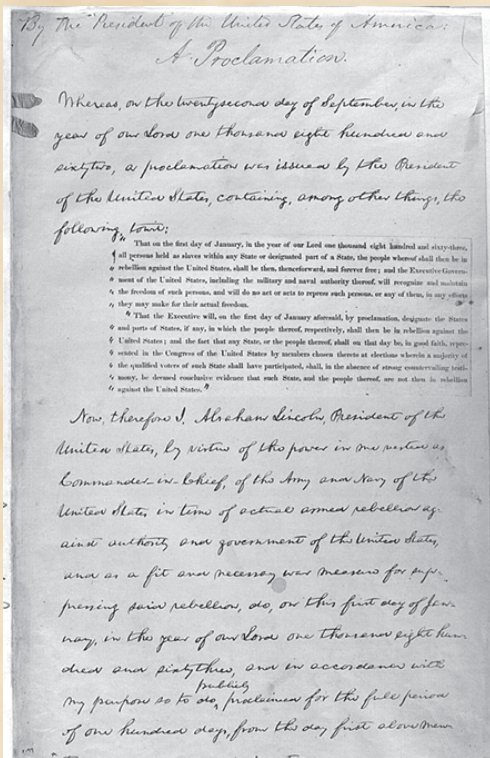 By the President of the United States of America:
A Proclamation.
Whereas, on the twentysecond day of September, in the
year of our Lord one thousand eight hundred and
sixtytwo, a proclamation was issued by the President
of the United States, containing, among other things, the
following, towit:
" That on the first day of January, in the year of our Lord one thousand eight hundred and sixty-three,
" all persons held as slaves within any State or designated part of a State, the people whereof shall then be in
" rebellion against the United States, shall be then, thenceforward, and forever free; and the Executive Govern-
" ment of the United States, including the military and naval authority thereof, will recognize and maintain
" the freedom of such persons, and will do no act or acts to repress such persons, or any of them, in any efforts
" they may make for their actual freedom.
" That the Executive will, on the first day of January aforesaid, by proclamation, designate the States
" and parts of States, if any, in which the people thereof, respectively, shall then be in rebellion against the
" United States; and the fact that any State, or the people thereof, shall on that day be, in good faith, repre-
" sented in the Congress of the United States by members chosen thereto at elections wherein a majority of
" the qualified voters of such State shall have participated, shall, in the absence of strong countervailing testi-
" mony, be deemed conclusive evidence that such State, and the people thereof, are not then in rebellion
" against the United States. "
Now, therefore I, Abraham Lincoln, President of the
United States, by virtue of the power in me vested as
Commander-in-Chief, of the Army and Navy of the
United States in time of actual armed rebellion ag-
ainst authority and government of the United States,
and as a fit and necessary war measure for sup-
pressing said rebellion, do, on this first day of Jan-
uary, in the year of our Lord one thousand eight hun-
dred and sixtythree, and in accordance with
my purpose so to do, publicly proclaimed for the full period
of one hundred days, from the day first above men-